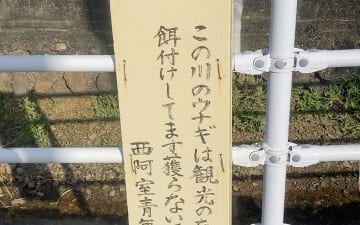 この川のウナギは観光のた
餌付けしてます獲らない
西阿室青年